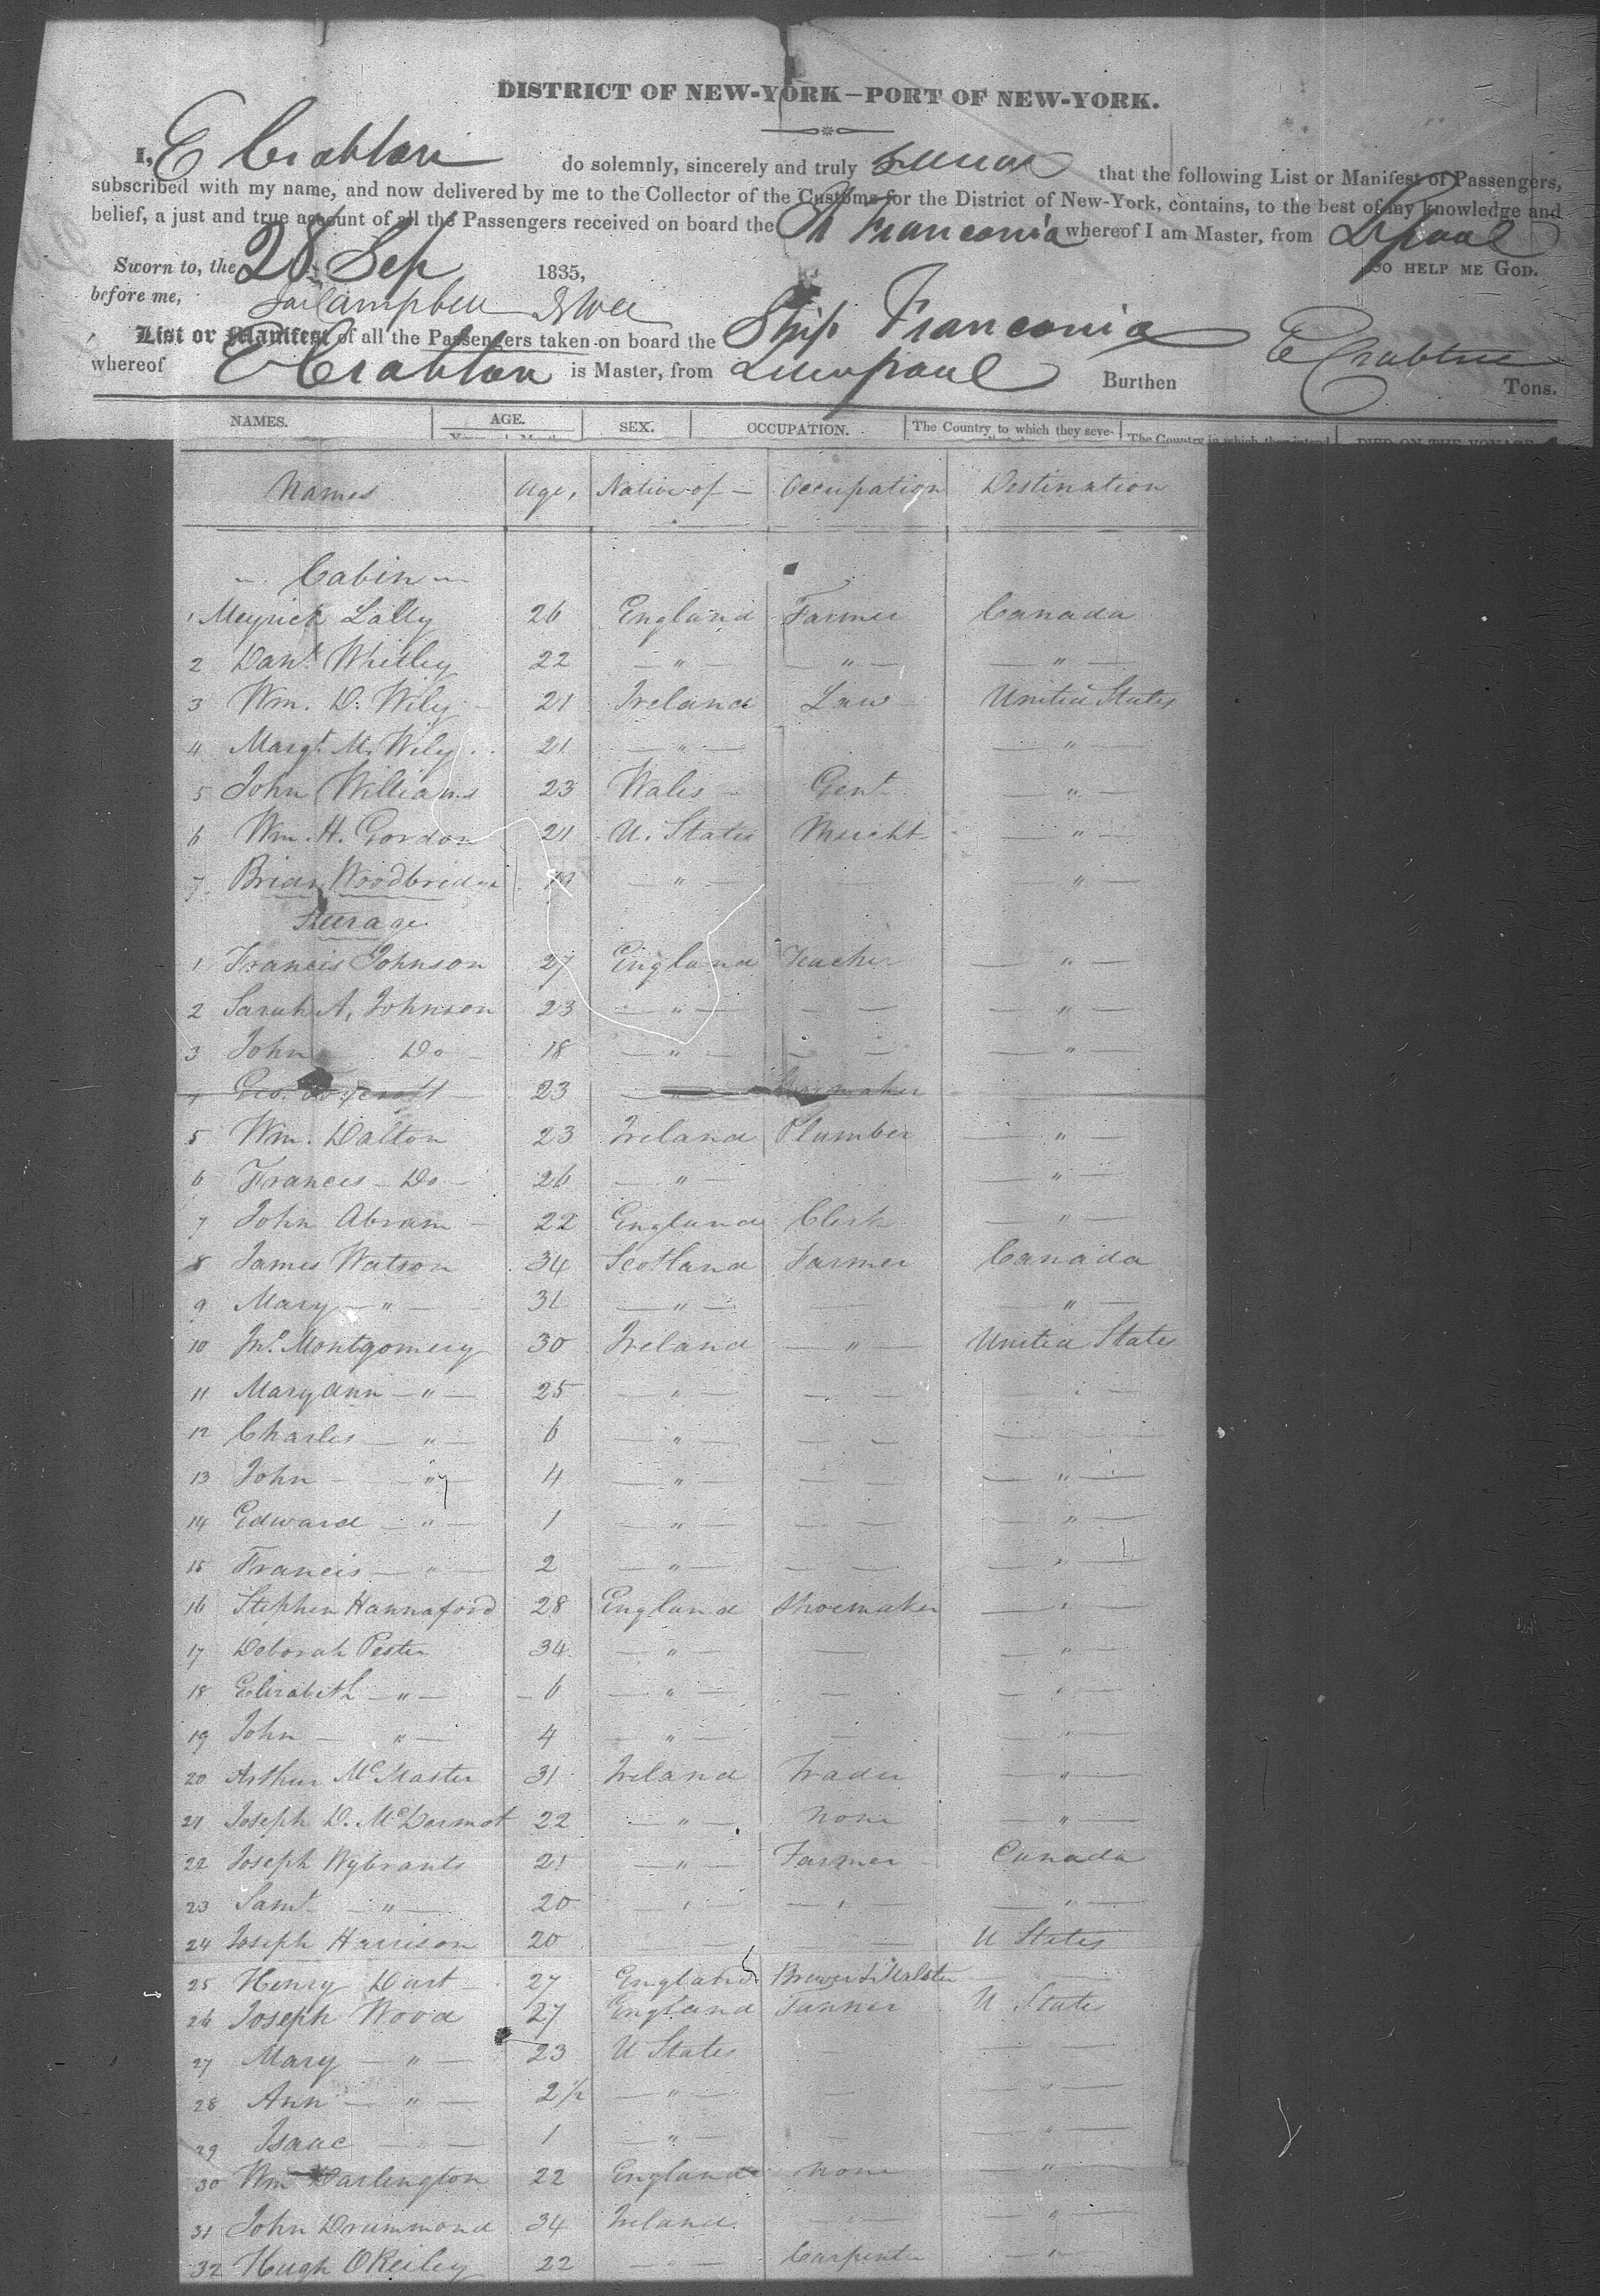 DISTRICT OF NEW-YORK—PORT OF NEW-YORK.
I, E Crabtree do solemnly, sincerely and truly swear that the following List or Manifest of Passengers,
subscribed with my name, and now delivered by me to the Collector of the Customs for the District of New-York, contains, to the best of my knowledge and
belief, a just and true account of all the Passengers received on board the Sh Franconia whereof I am Master, from Lpool
Sworn to, the 28 Sep 1835, SO HELP ME GOD.
before me, Campbell
List or Manifest of all the Passengers taken on board the Ship Franconia E Crabtree
whereof E Crabtree is Master, from Liverpool Burthen Tons.
NAMES. AGE. SEX. OCCUPATION. The Country to which they seve- The Country in which they intend DIED ON THE VOYAGE
Names Age, Native of — Occupation Destination
Cabin
1 Meyrick Lally 26 England Farmer Canada
2 Danl. Whitley 22 — " — — " — — " —
3 Wm. D. Wily 21 Ireland Law United States
4 Margt. M. Wily 21 — " — — " —
5 John Williams 23 Wales Gent — " —
6 Wm. H. Gordon 21 U. States Mercht — " —
7 Woodbridge — " — — " —
Steerage
1 Francis Johnson 27 England Teacher — " —
2 Sarah A, Johnson 23 — " — — — — " —
3 John Do 18 — " — — — — " —
4 Geo. 23 Shoemaker
5 Wm. Dalton 23 Ireland Plumber — " —
6 Frances — Do — 26 — " — " —
7 John Abram 22 England Clerk — " —
8 James Watson 34 Scotland Farmer Canada
9 Mary — " — 31 — " — — " —
10 Jno. Montgomery 30 Ireland — " — United States
11 Mary Ann — " — 25 — " — — — — " —
12 Charles — " — 6 — " — — — — —
13 John — " — 4 — " — — — — " —
14 Edward — " — 1 — " — — — — " —
15 Francis — " — 2 — " — — — — " —
16 Stephen Hannaford 28 England Shoemaker — " —
17 Deborah Pester 34 — " — — — " —
18 Elizabeth — " — 6 — " — — — " —
19 John — " — 4 — " — — — " —
20 Arthur McMaster 31 Ireland Trader — " —
21 Joseph D. McDermot 22 — " — None — " —
22 Joseph Wybrants 21 — " — Farmer Canada
23 Saml. — " — 20 — " — — " — — " —
24 Joseph Harrison 20 — — — — U States
25 Henry Dart 27 England Brewer & Malster — —
26 Joseph Wood 27 England Tanner U States
27 Mary — " — 23 U States — — —
28 Ann — " — 2½ — " — — — " —
29 Isaac — — 1 — " — — — " —
30 Wm Darlington 22 England None — " —
31 John Drummond 34 Ireland — — — " —
32 Hugh OReiley 22 — " — Carpenter — " —